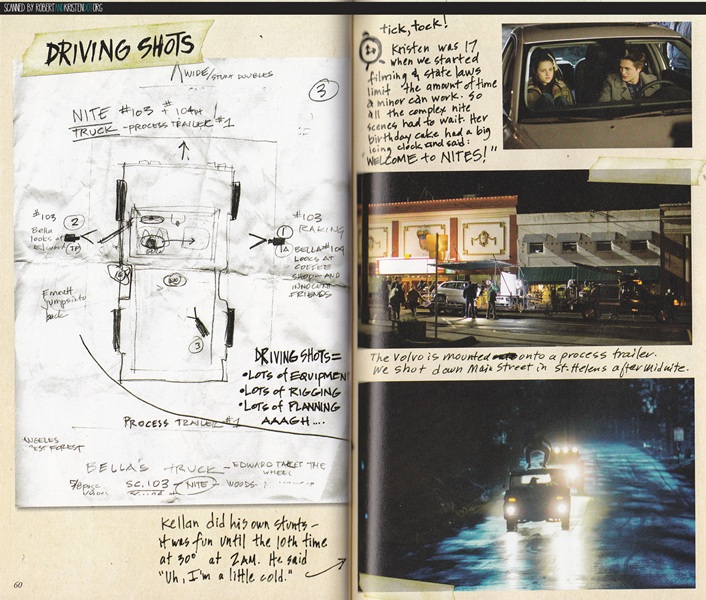 SCANNED BY ROBERTANDKRISTENDOTORG
DRIVING SHOTS
WIDE/STUNT DOUBLES
3
NITE #103 + 104pt
TRUCK - PROCESS TRAILER #1
#103
Bella
looks at
Edward
2
1
1A
#103
RAKING
BELLA #104
LOOKS AT
COFFEE
SHOP - AND
INNOCENT
FRIENDS
Emmett
jumps into
back
3
DRIVING SHOTS=
• LOTS of EQUIPMENT
• LOTS of RIGGING
• LOTS of PLANNING
AAAGH....
PROCESS TRAILER #1
ANGELES
FOREST
BELLA'S TRUCK - EDWARD TAKES THE
WHEEL
SC. 103 - NITE - WOODS -
Kellan did his own stunts -
it was fun until the 10th time
at 30° at 2AM. He said
"Uh, I'm a little cold."
60
tick, tock!
Kristen was 17
when we started
filming & state laws
limit the amount of time
a minor can work. So
all the complex nite
scenes had to wait. Her
birthday cake had a big
icing clock and said:
"WELCOME to NITES!"
The Volvo is mounted onto a process trailer.
We shot down Main Street in St. Helens after midnite.